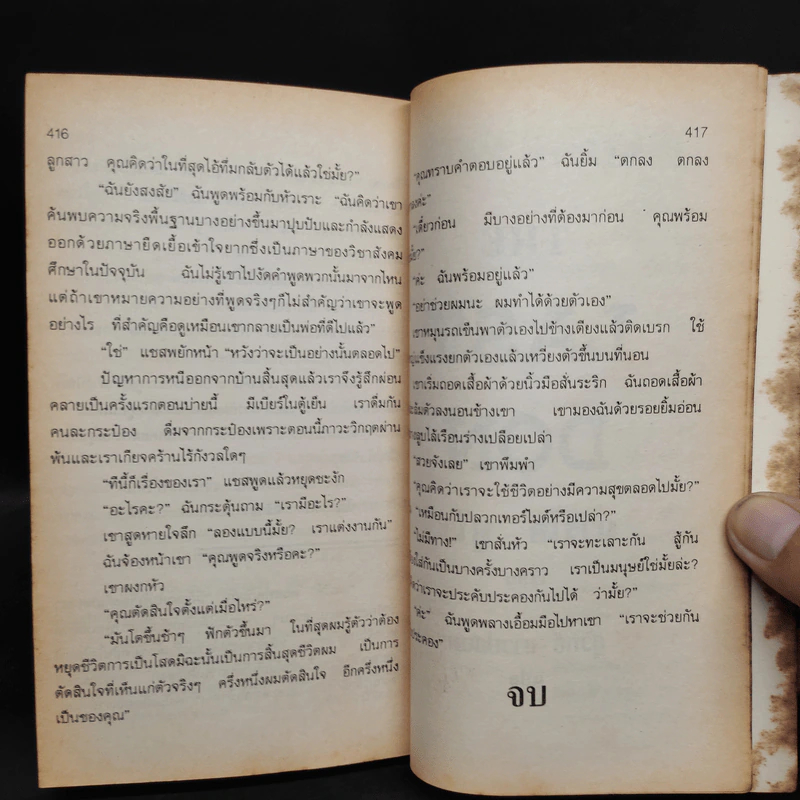 416
ลูกสาว คุณคิดว่าในที่สุดไอ้ทึ่มกลับตัวได้แล้วใช่มั้ย?"
"ฉันยังสงสัย" ฉันพูดพร้อมกับหัวเราะ "ฉันคิดว่าเขา
ค้นพบความจริงพื้นฐานบางอย่างขึ้นมาปุบปับและกำลังแสดง
ออกด้วยภาษายืดเยื้อเข้าใจยากซึ่งเป็นภาษาของวิชาสังคม
ศึกษาในปัจจุบัน ฉันไม่รู้เขาไปงัดคำพูดพวกนั้นมาจากไหน
แต่ถ้าเขาหมายความอย่างที่พูดจริงๆก็ไม่สำคัญว่าเขาจะพูด
อย่างไร ที่สำคัญคือดูเหมือนเขากลายเป็นพ่อที่ดีไปแล้ว"
"ใช่" แชสพยักหน้า "หวังว่าจะเป็นอย่างนั้นตลอดไป"
ปัญหาการหนีออกจากบ้านสิ้นสุดแล้วเราจึงรู้สึกผ่อน
คลายเป็นครั้งแรกตอนบ่ายนี้ มีเบียร์ในตู้เย็น เราดื่มกัน
คนละกระป๋อง ดื่มจากกระป๋องเพราะตอนนี้ภาวะวิกฤตผ่าน
พ้นและเราเกียจคร้านไร้กังวลใดๆ
"ทีนี้ก็เรื่องของเรา" แชสพูดแล้วหยุดชะงัก
"อะไรคะ?" ฉันกระตุ้นถาม "เรามีอะไร?"
เขาสูดหายใจลึก "ลองแบบนี้มั้ย? เราแต่งงานกัน"
ฉันจ้องหน้าเขา "คุณพูดจริงหรือคะ?"
เขาผงกหัว
"คุณตัดสินใจตั้งแต่เมื่อไหร่?"
"มันโตขึ้นช้าๆ ฟักตัวขึ้นมา ในที่สุดผมรู้ตัวว่าต้อง
หยุดชีวิตการเป็นโสดมิฉะนั้นเป็นการสิ้นสุดชีวิตผม เป็นการ
ตัดสินใจที่เห็นแก่ตัวจริงๆ ครึ่งหนึ่งผมตัดสินใจ อีกครึ่งหนึ่ง
เป็นของคุณ"
417
"คุณทราบคำตอบอยู่แล้ว" ฉันยิ้ม "ตกลง ตกลง
ค่ะ"
"เดี๋ยวก่อน มีบางอย่างที่ต้องมาก่อน คุณพร้อม
มั้ย?"
"ค่ะ ฉันพร้อมอยู่แล้ว"
"อย่าช่วยผมนะ ผมทำได้ด้วยตัวเอง"
เขาหมุนรถเข็นพาตัวเองไปข้างเตียงแล้วติดเบรก ใช้
แข็งแรงยกตัวเองแล้วเหวี่ยงตัวขึ้นบนที่นอน
เขาเริ่มถอดเสื้อผ้าด้วยนิ้วมือสั่นระริก ฉันถอดเสื้อผ้า
ล้มตัวลงนอนข้างเขา เขามองฉันด้วยรอยยิ้มอ่อน
ลูบไล้เรือนร่างเปลือยเปล่า
"สวยจังเลย" เขาพึมพำ
"คุณคิดว่าเราจะใช้ชีวิตอย่างมีความสุขตลอดไปมั้ย?"
"เหมือนกับปลวกเทอร์ไมต์หรือเปล่า?"
"ไม่มีทาง!" เขาสั่นหัว "เราจะทะเลาะกัน สู้กัน
ใส่กันเป็นบางครั้งบางคราว เราเป็นมนุษย์ใช่มั้ยล่ะ?
ว่าเราจะประคับประคองกันไปได้ ว่ามั้ย?"
"ค่ะ" ฉันพูดพลางเอื้อมมือไปหาเขา "เราจะช่วยกัน
ประคอง"
จบ